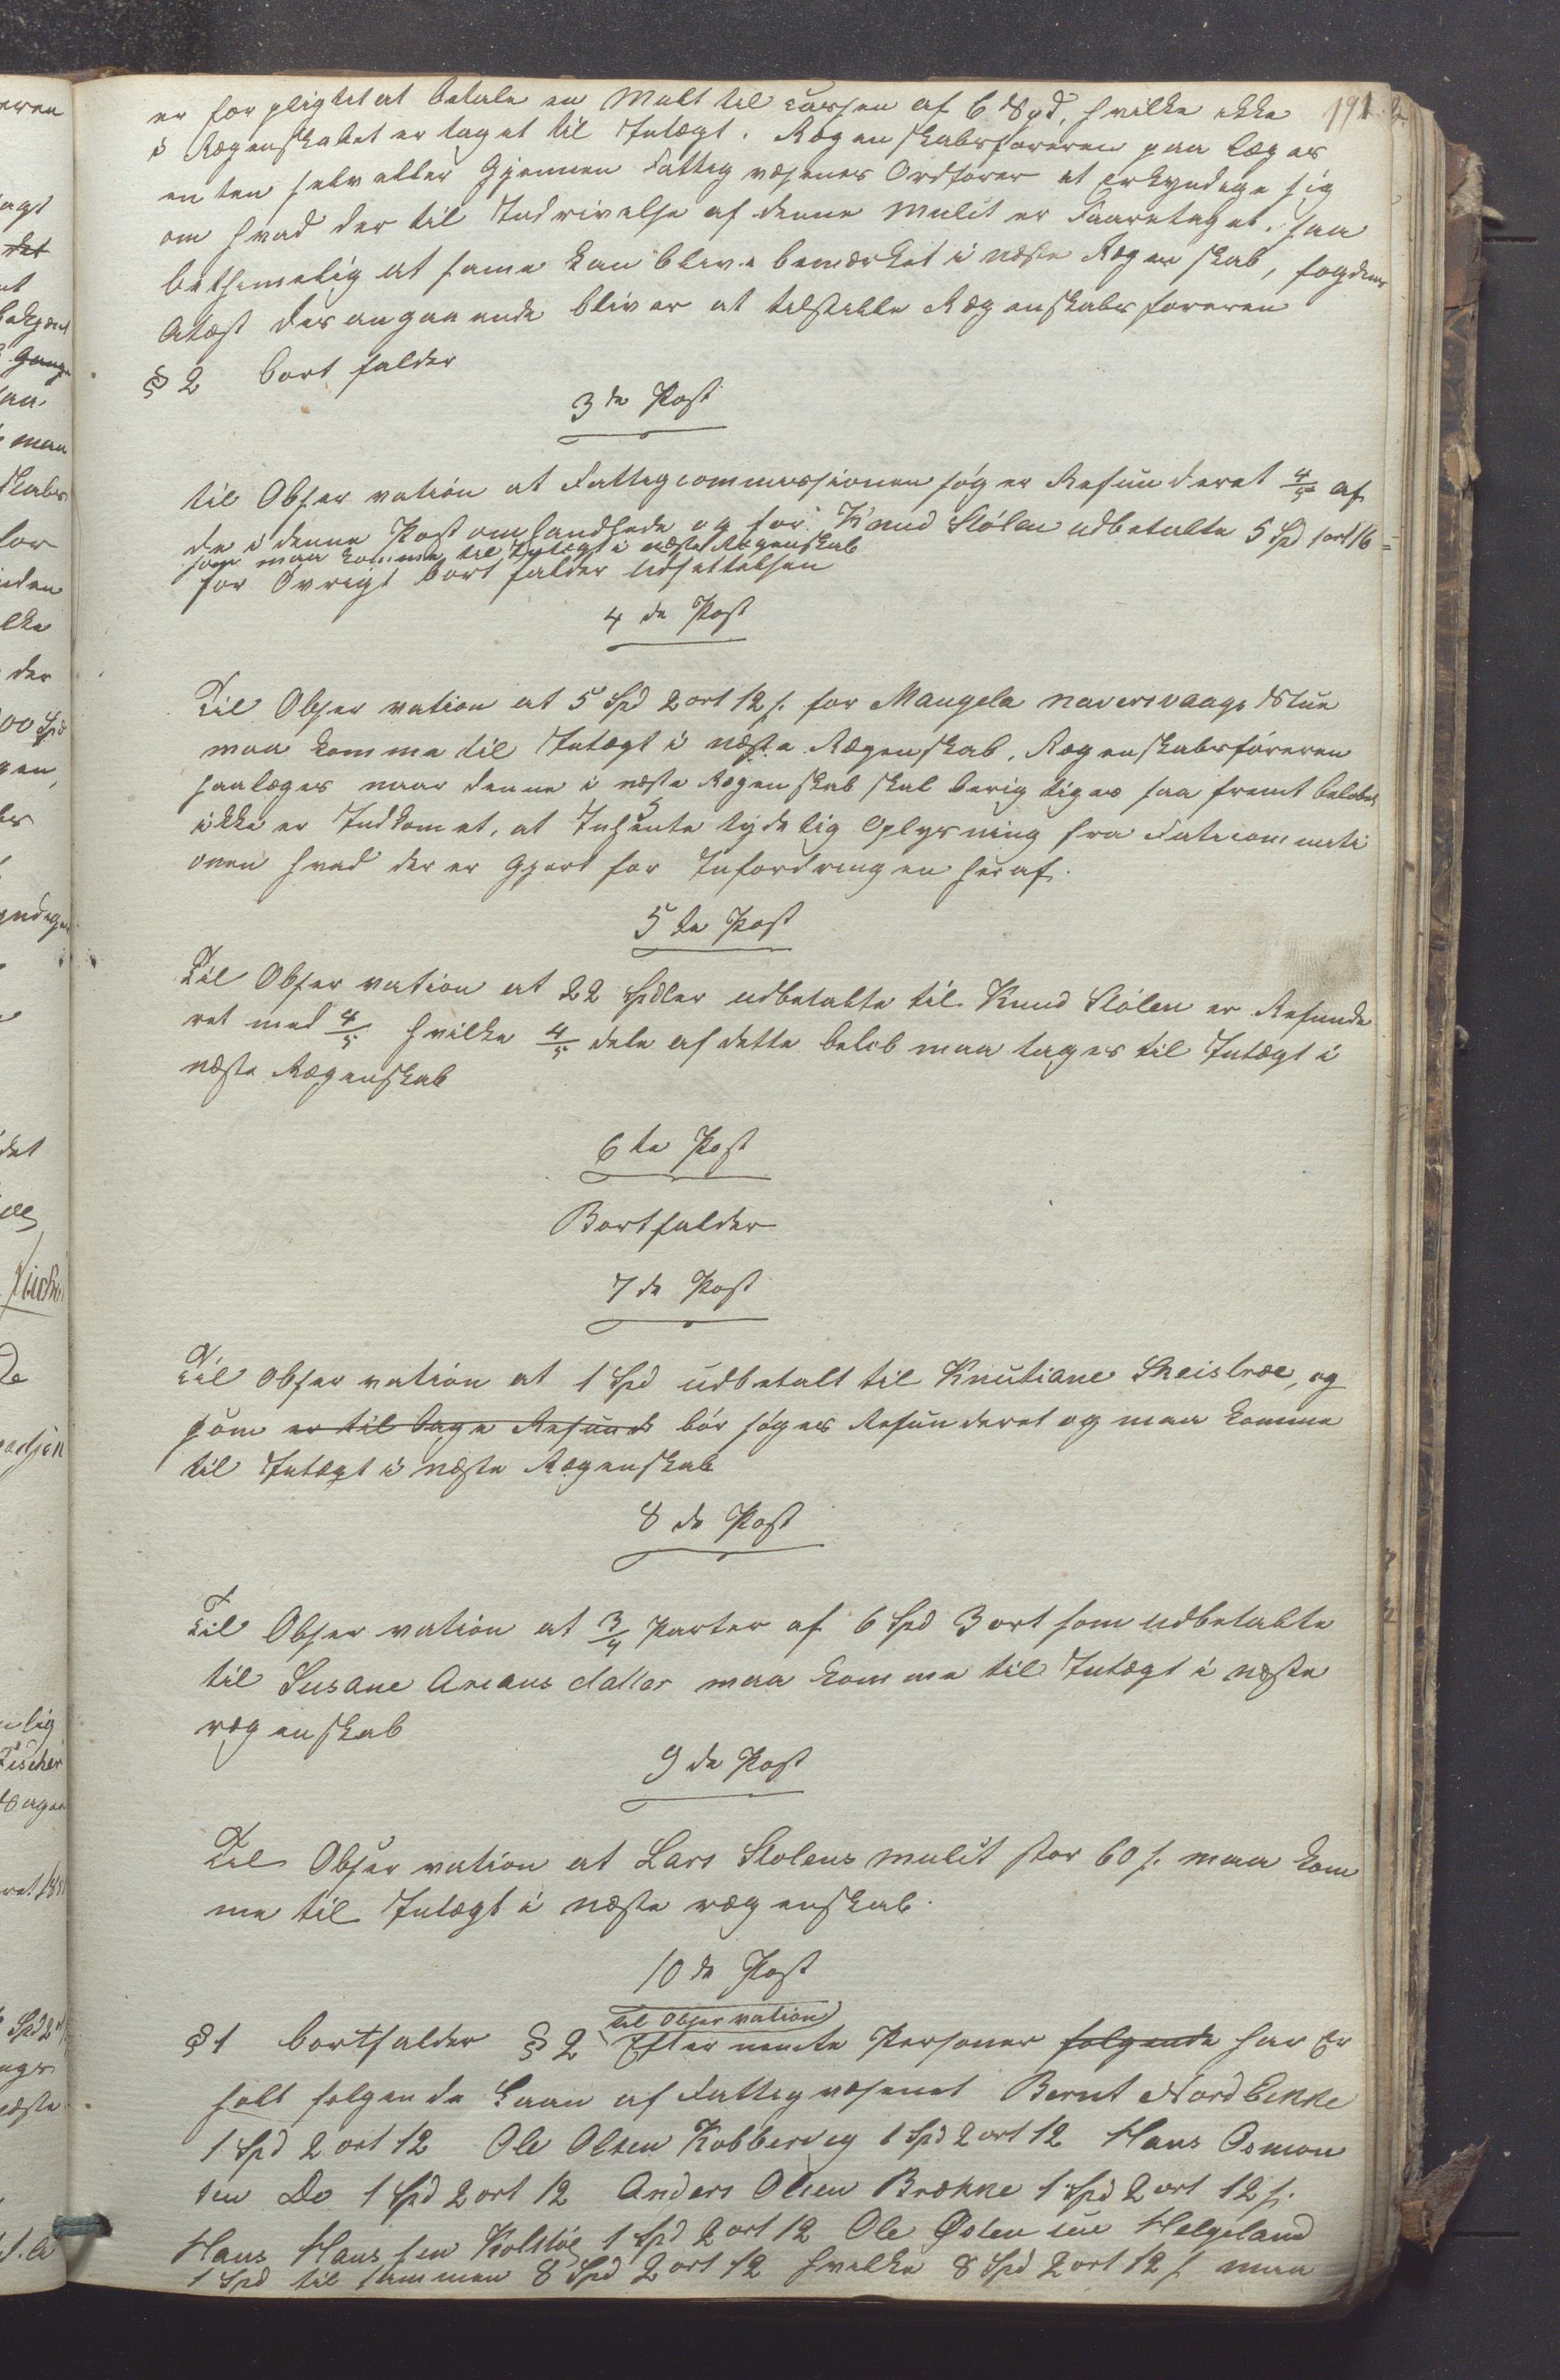 191.b.
er forpligtet at betale en Mult til Cassen af 6 Spd, hvilke ikke
i Regenskabet er taget til Intægt. Regenskabsføreren paalæges
enten selv eller Gjennem Fattigvæsenes Ordfører at erkyndige sig
om hvad der til Inddrivelse af denne Mulct er Faaretaget, saa
betimelig at same kan blive bemærket i næste Regenskab, fogdens
Atæst des angaaende bliver at tilstille Regenskabsføreren
§ 2 bort falder
3de Post
til Observation at Fattigcommissionen søger Refunderet 4/5 af
de i denne Post omhandlede og for Knud Stölen udbetalte 5 Spd 1 ort 16
som maa komme til Intægt i næste Regenskab
for Øvrigt bort falder Udsættelsen
4de Post
Til Observation at 5 Spd 2 ort 12 s. for Mangela naversvaags Stue
maa komme til Intægt i næste Regenskab. Regenskabsføreren
paalæges naar denne i næste Regenskab skal berigtiges saa fremt beløbet
ikke er Indkomet, at Inhente tydelig Oplysning fra Faticommisi
onen hvad der er Gjort for Infordringen heraf.
5te Post
Til Observation at 22 Spdler udbetalte til Knud Stölen er Refunde
ret med 4/5 hvilke 4/5 dele af dette beløb maa tages til Intægt i
næste Regenskab
6te Post
Bortfalder
7de Post
Til Observation at 1 Spd udbetalt til Knutiane Skeistræe, og
som er til bage Refund bör søges Refunderet og maa komme
til Intægt i næste Regenskab
8de Post
Til Observation at 3/4 Parter af 6 Spd 3 ort som udbetalte
til Susane Areans datter maa komme til Intægt i næste
regenskab
9de Post
Til Observation at Lars Stolens mulct stor 60 s. maa kom
me til Intægt i næste regenskab.
10de Post
til Observation
§ 1 bortfalder § 2 Efter nævnte Personer følgende har Er
holt følgende Laan af Fattigvæsenet Bernt Nord
1 Spd 2 ort 12 Ole Olsen Kobbervig 1 Spd 2 ort 12 Hans Osmon
sen Do 1 Spd 2 ort 12 Anders Olsen Bræhne 1 Spd 2 ort 12 s.
Hans Hansen Kolstöe 1 Spd 2 ort 12 Ole Østensen Helgeland
1 Spd til sammen 8 Spd 2 ort 12 hvilke 8 Spd 2 ort 12 s maa